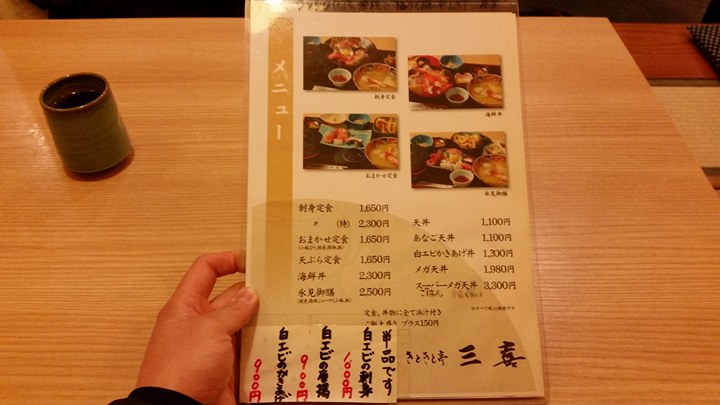 メニュー
刺身定食
海鮮丼
おまかせ定食
氷見御膳
刺身定食 1,650円
〃 (特) 2,300円
おまかせ定食 1,650円
天ぷら定食 1,650円
海鮮丼 2,300円
氷見御膳 2,500円
天丼 1,100円
あなご天丼 1,100円
白エビかきあげ丼 1,300円
メガ天丼 1,980円
スーパーメガ天丼 3,300円
定食、丼物に全て浜汁付き
ご飯大盛り プラス150円
きときと亭 三喜
単品です
白エビの刺身 1,000円
白エビの唐揚 900円
白エビのかきあげ 900円